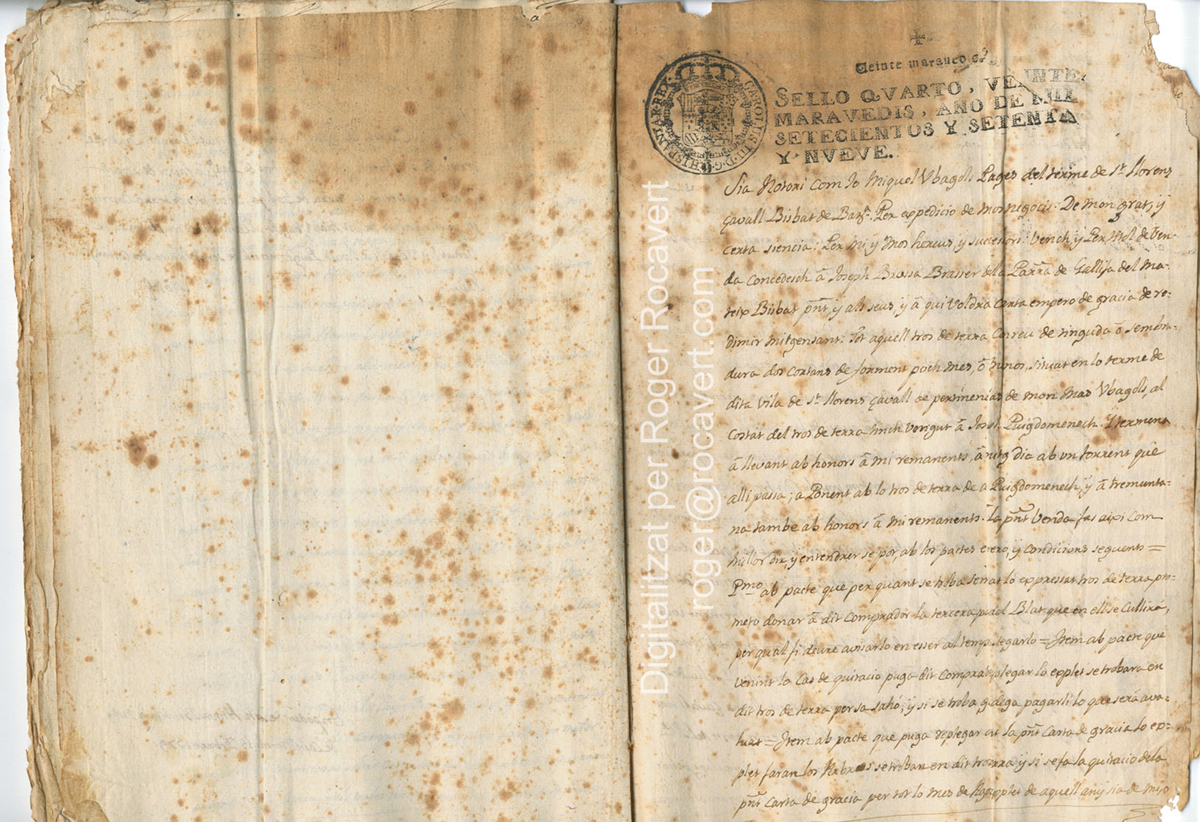 Veinte maravedis
SELLO QVARTO, VEINTE
MARAVEDIS, AÑO DE MIL
SETECIENTOS Y SETENTA
Y NVEVE.
CAROLUS III D.G. HISPANIAR. REX
Sia Notori Com Jo Miquel Vbagols Pages del terme de St. Llorens
çavall Bisbat de Barª. Per expedicio de mos negocis: De mon grat, y
certa siencia: Per mi y mos hereus, y successors: Vench, y Per titol de Ven-
da Concedesch â Joseph Brossa Brasser de la Parrª de Gallifa del ma-
teix Bisbat pnt y als seus y â qui voldrâ Carta empero de gracia de re-
dimir mitgensant: Tot aquell tros de terra Correu de tinguda ô sembra-
dura dos cortans de forment poch mes ô menos, situat en lo terme de
dita Vila de St. Llorens çavall de pertinencias de mon Mas Vbagols, al
Costat del tros de terra tinch Vengut â Josh. Puigdomenech. Y termena
â llevant ab honors â mi remanents, â mitg dia ab un torrent que
alli passa; a Ponent ab lo tros de terra de a Puigdomenech, y â tremunta-
na tambe ab honors â mi remanents. La pnt Venda fas aixi com
millor dir y entendrer se por ab los pactes emperò, y condicions seguents=
Pmo. ab pacte que per quant se troba senat lo expressat tros de terra pro-
meto donar â dit Comprador la tercera part del Blat que en ell se Cullirâ,
per qual fi deure avisarlo en esser al temp segarlo= Item ab pacte que
venint lo Cas de quitacio puga dit Comprador plegar lo explet se trobara en
dit tros de terra per sa sahò; y si se troba q diga pagarli lo que serâ ava-
luat= Item ab pacte que puga replegar en la pnt Carta de gracia lo ex-
plet faran los Rabasos se troban en dit tros terra y si se fa la quitacio de la
pnt Carta de gracia per tot lo mes de Agost de aquell any sia de mijo
Digitalitzat per Roger Rocavert
roger@rocavert.com